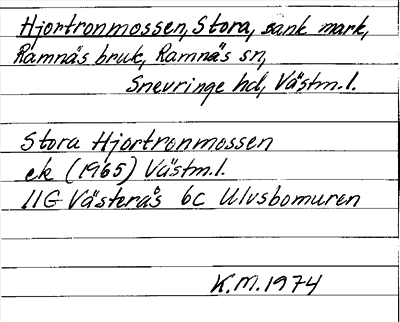 Hjortronmossen, Stora, sank mark,
Ramnäs bruk, Ramnäs sn,
Snevringe hd, Västm.l.
Stora Hjortronmossen
ek (1965) Västm.l.
11G Västerås 6c Ulvsbomuren
K.M. 1974